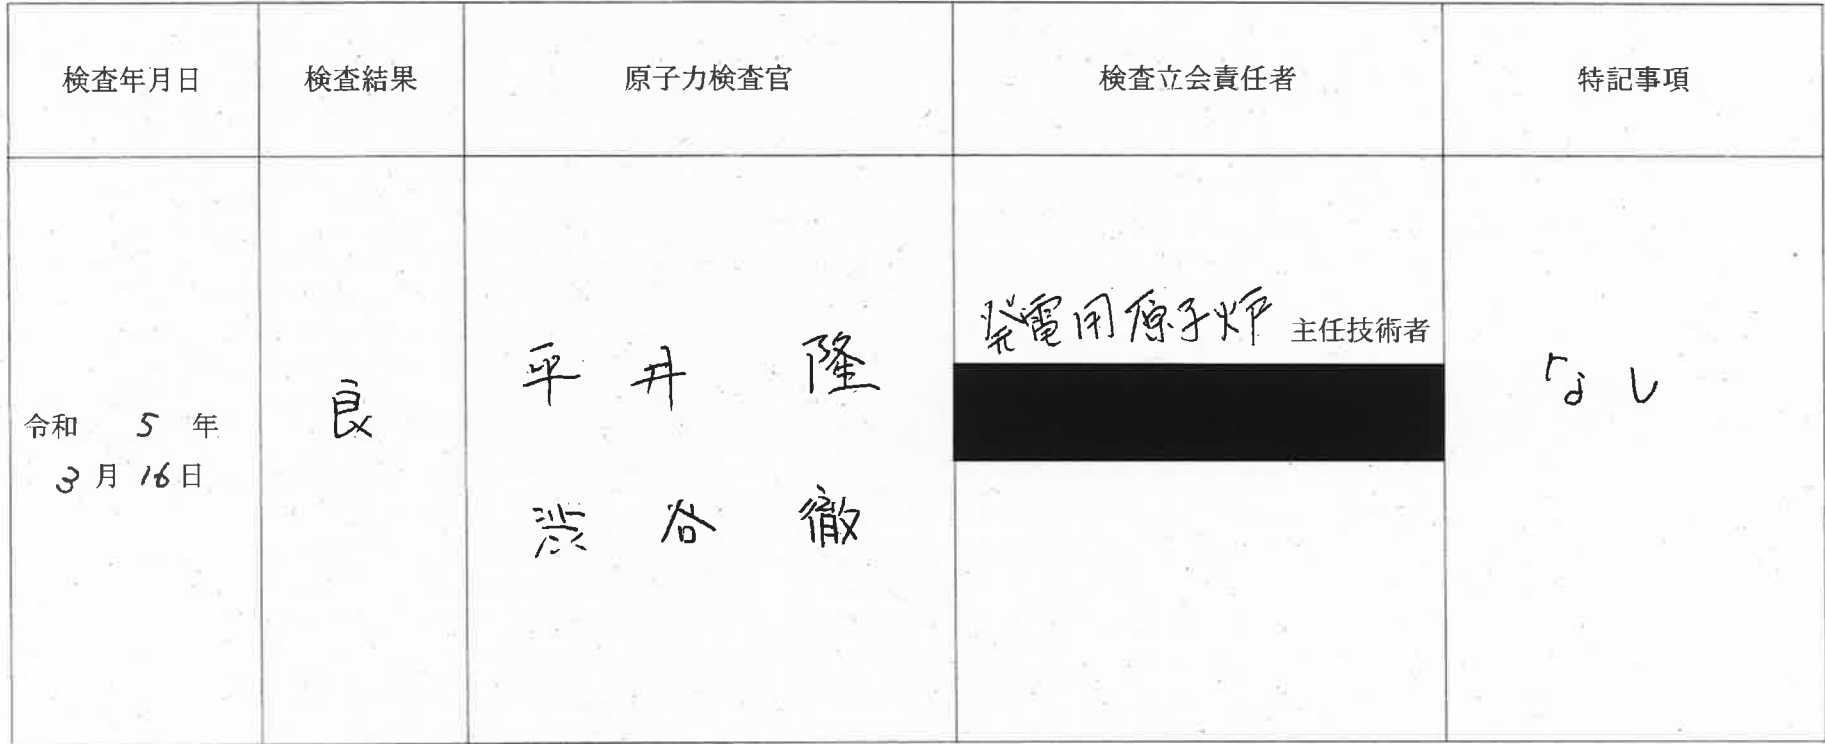 検査年月日 検査結果 原子力検査官 検査立会責任者 特記事項
令和 5 年
3 月 16 日
良
平井 隆
渋谷 徹
発電用原子炉 主任技術者
なし